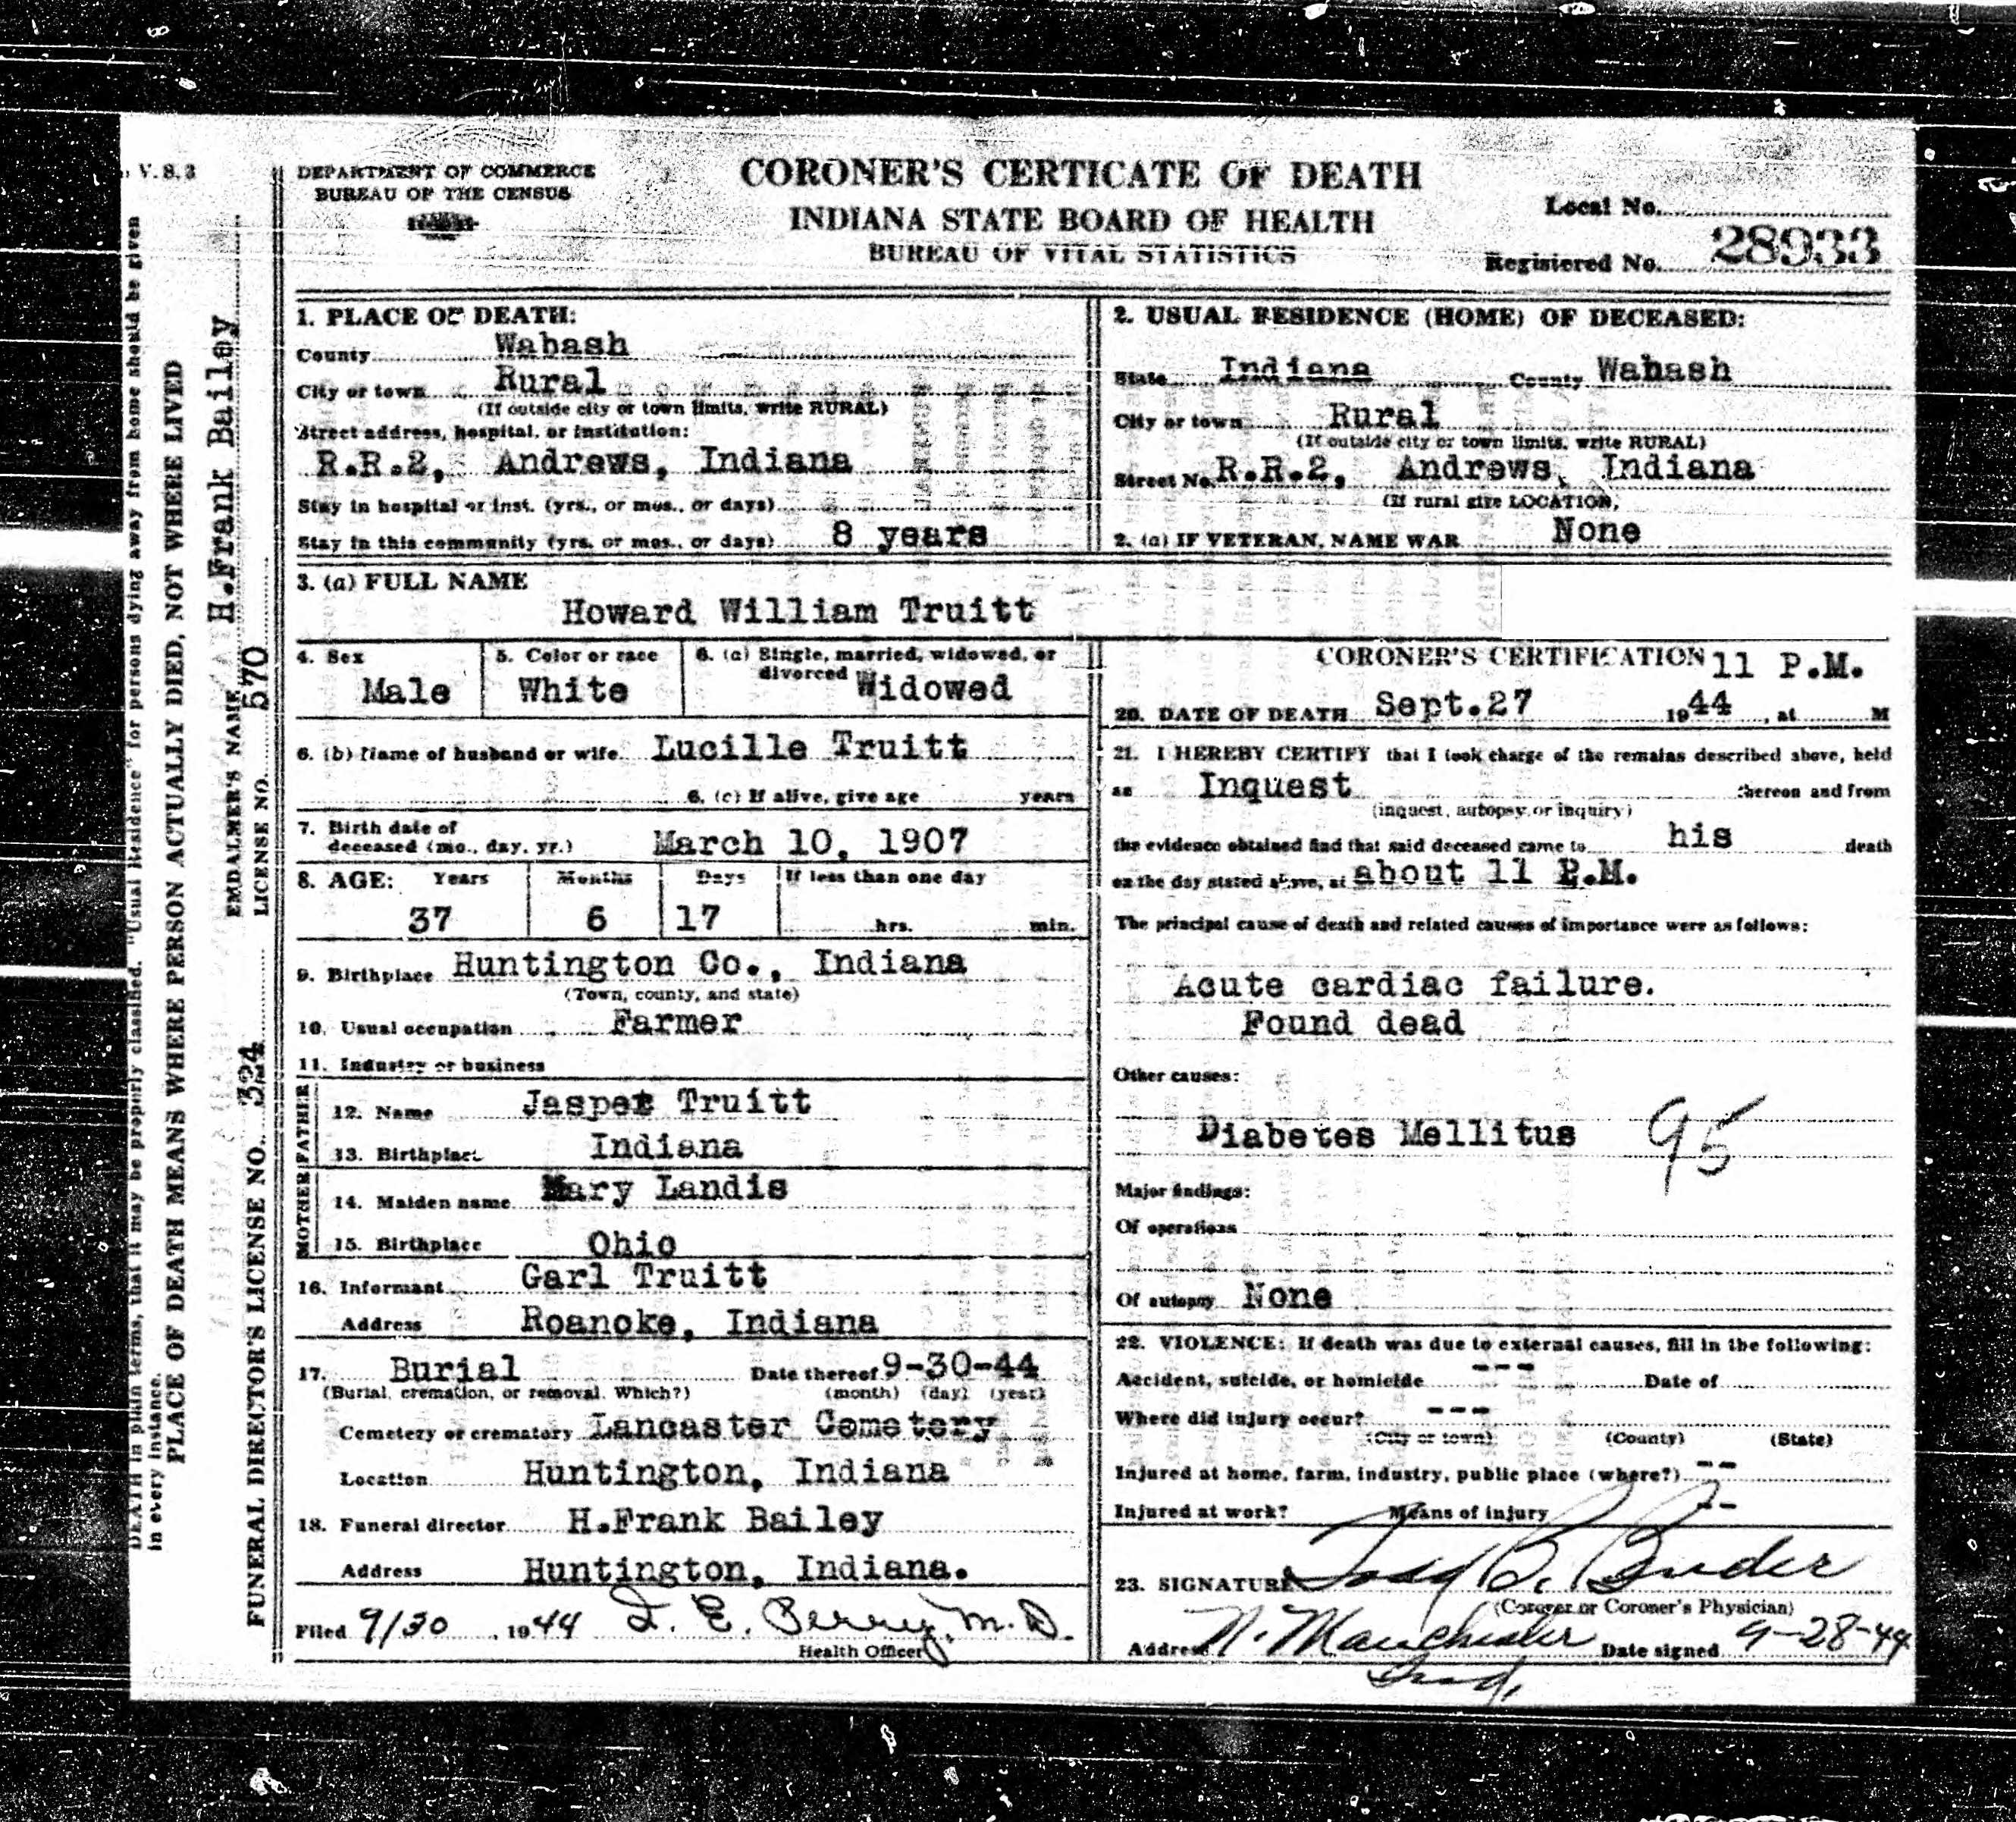 V. S. 3
DEPARTMENT OF COMMERCE
BUREAU OF THE CENSUS
CORONER'S CERTICATE OF DEATH
INDIANA STATE BOARD OF HEALTH
BUREAU OF VITAL STATISTICS
Local No.
Registered No. 28933
1. PLACE OF DEATH:
County Wabash
City or town Rural
(If outside city or town limits, write RURAL)
Street address, hospital, or institution:
R.R.2, Andrews, Indiana
Stay in hospital or inst. (yrs., or mos., or days)
Stay in this community (yrs. or mos., or days) 8 years
2. USUAL RESIDENCE (HOME) OF DECEASED:
State Indiana County Wabash
City or town Rural
(If outside city or town limits, write RURAL)
Street No. R.R.2, Andrews, Indiana
(If rural give LOCATION)
2. (a) IF VETERAN, NAME WAR None
3. (a) FULL NAME
Howard William Truitt
4. Sex Male
5. Color or race White
6. (a) Single, married, widowed, or divorced Widowed
6. (b) Name of husband or wife Lucille Truitt
6. (c) If alive, give age years
7. Birth date of deceased (mo., day, yr.) March 10, 1907
8. AGE: Years Months Days If less than one day
37 6 17 hrs. min.
9. Birthplace Huntington Co., Indiana
(Town, county, and state)
10. Usual occupation Farmer
11. Industry or business
FATHER
12. Name Jasper Truitt
13. Birthplace Indiana
MOTHER
14. Maiden name Mary Landis
15. Birthplace Ohio
16. Informant Garl Truitt
Address Roanoke, Indiana
17. Burial Date thereof 9-30-44
(Burial, cremation, or removal. Which?) (month) (day) (year)
Cemetery or crematory Lancaster Cemetery
Location Huntington, Indiana
18. Funeral director H.Frank Bailey
Address Huntington, Indiana.
Filed 9/30, 1944 L. E. Perry, M.D.
Health Officer
CORONER'S CERTIFICATION 11 P.M.
20. DATE OF DEATH Sept.27 1944, at M
21. I HEREBY CERTIFY that I took charge of the remains described above, held
an Inquest thereon and from
(inquest, autopsy or inquiry)
the evidence obtained find that said deceased came to his death
on the day stated above, at about 11 P.M.
The principal cause of death and related causes of importance were as follows:
Acute cardiac failure.
Found dead
Other causes:
Diabetes Mellitus 95
Major findings:
Of operations
Of autopsy None
22. VIOLENCE: If death was due to external causes, fill in the following:
Accident, suicide, or homicide --- Date of
Where did injury occur? ---
(City or town) (County) (State)
Injured at home, farm, industry, public place (where?) --
Injured at work? Means of injury --
23. SIGNATURE B. Bender
(Coroner or Coroner's Physician)
Address N. Manchester Date signed 9-28-44
Ind.
DEATH in plain terms, that it may be properly classified. "Usual Residence" for persons dying away from home should be given
in every instance.
PLACE OF DEATH MEANS WHERE PERSON ACTUALLY DIED, NOT WHERE LIVED
EMBALMER'S NAME H.Frank Bailey
FUNERAL DIRECTOR'S LICENSE NO. 324 LICENSE NO. 570